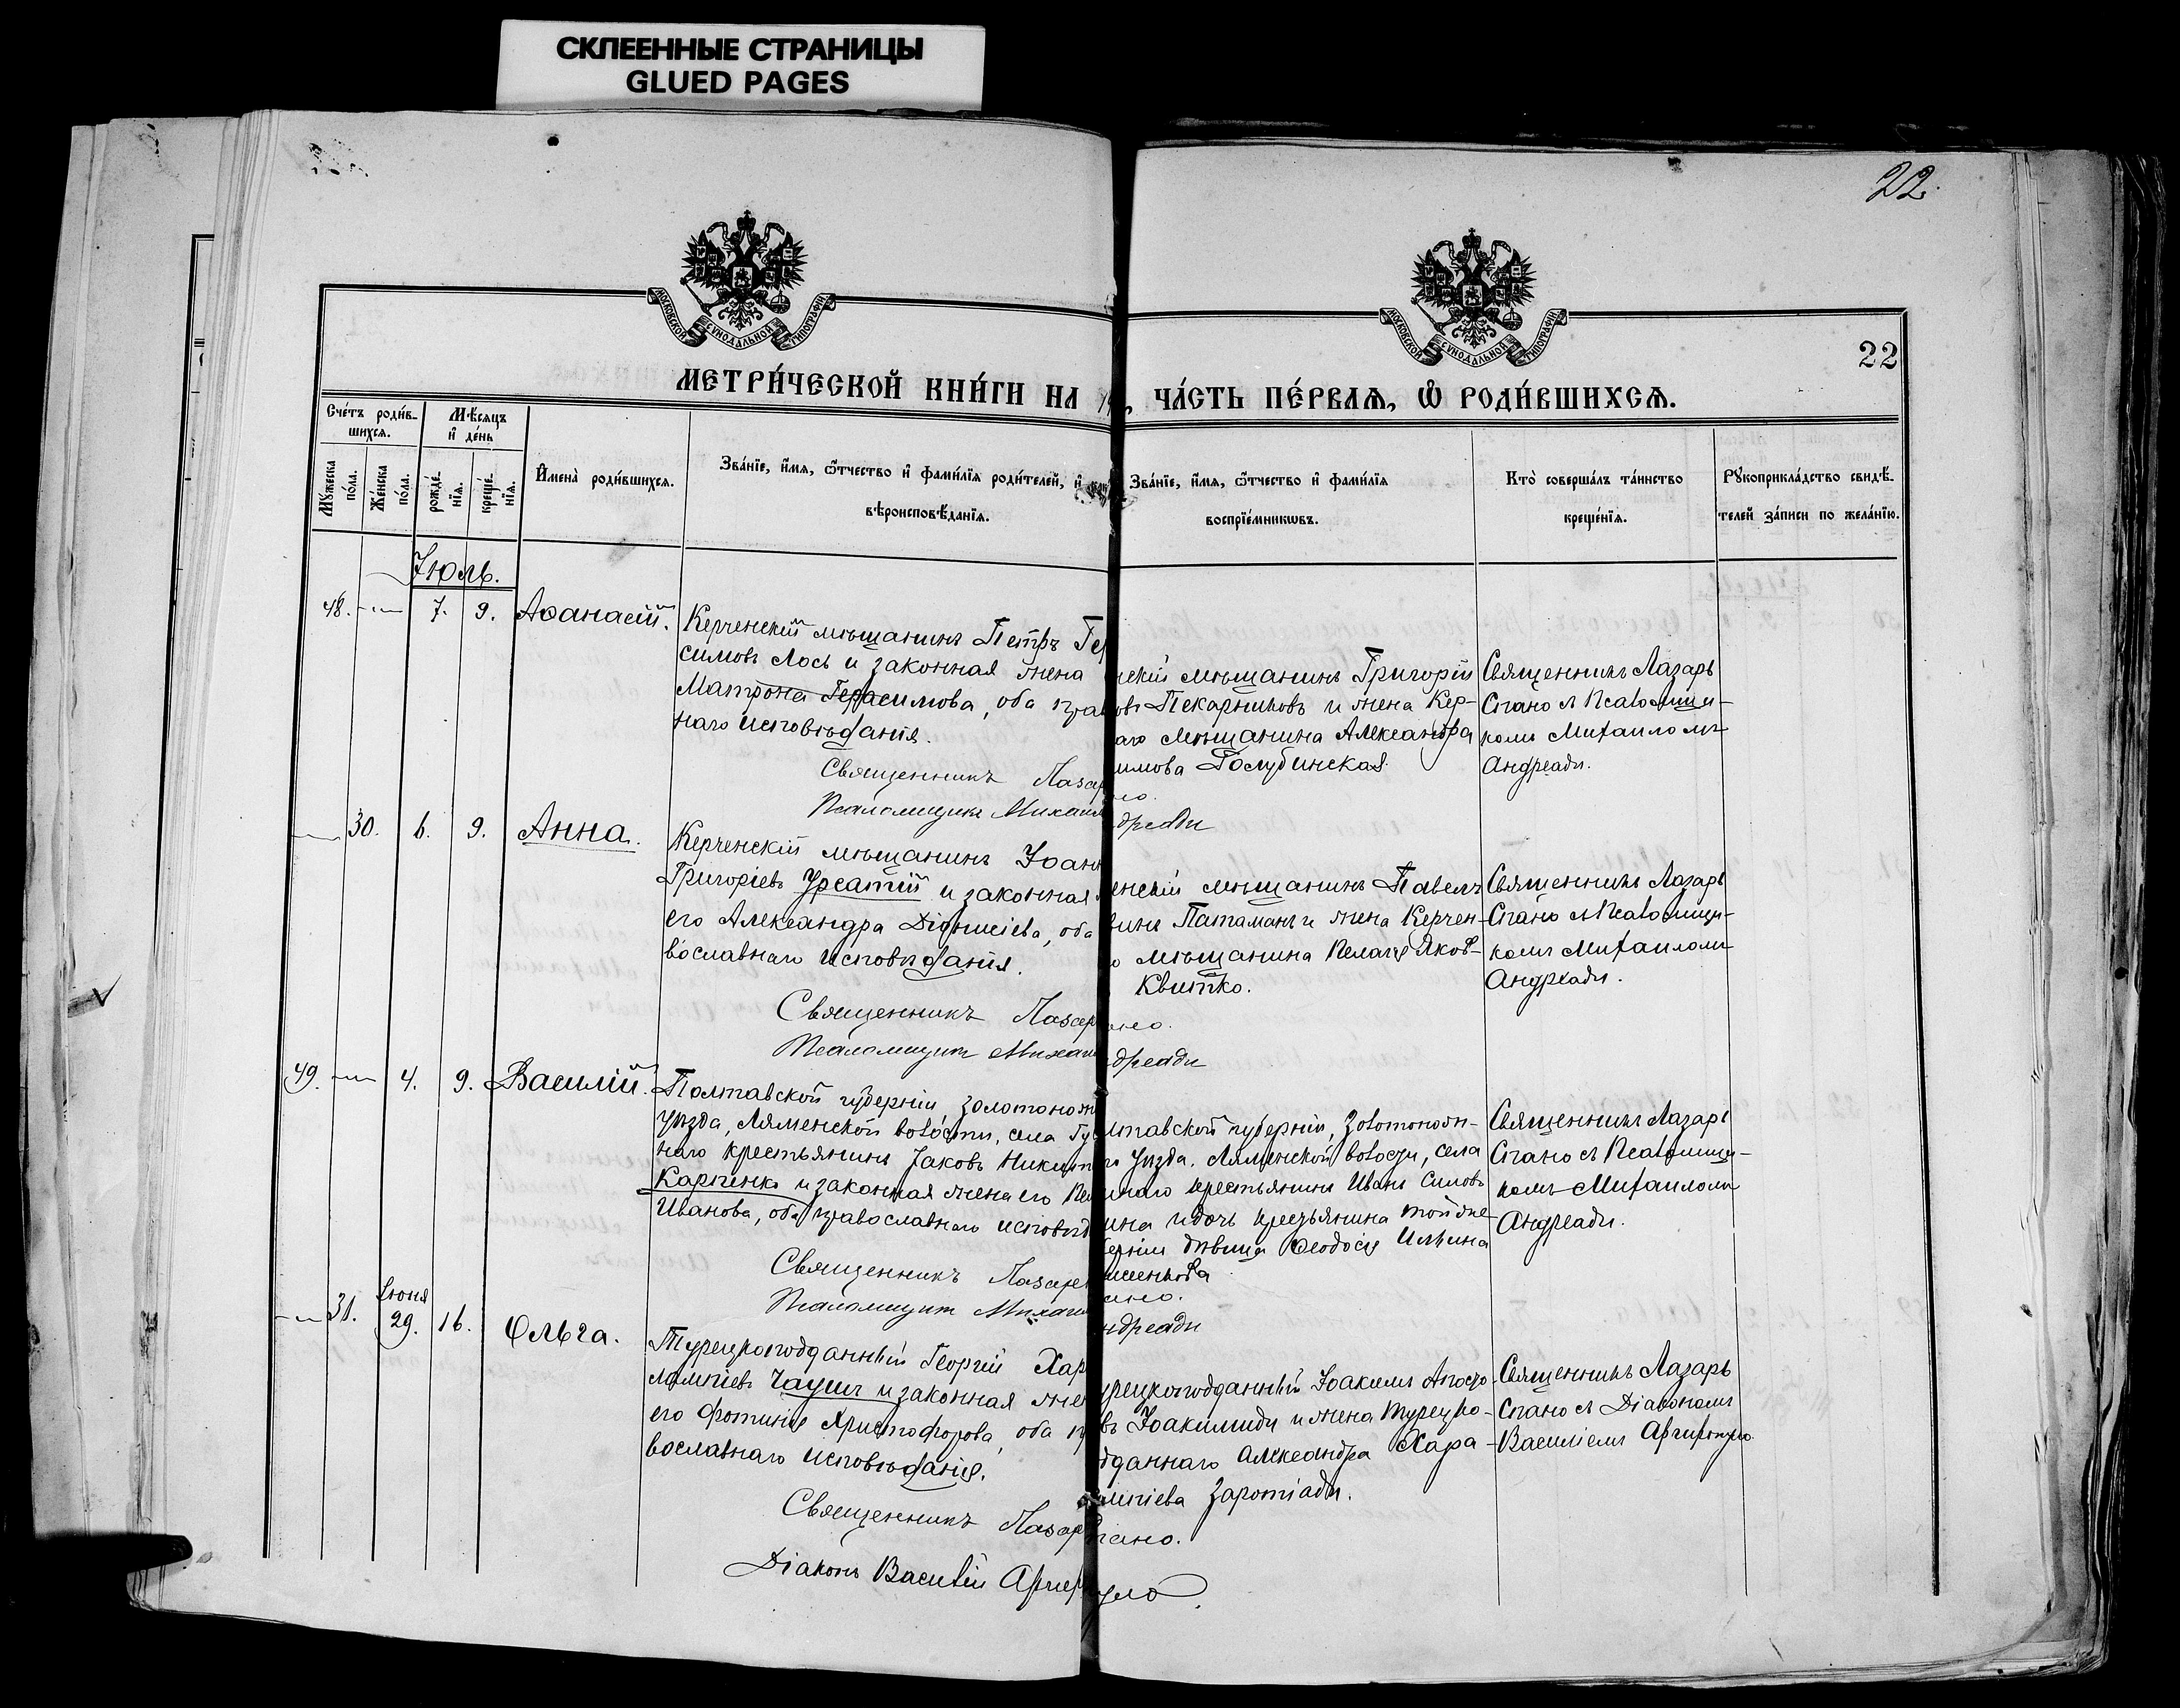 СКЛЕЕННЫЕ СТРАНИЦЫ
GLUED PAGES
22.
МОСКОВСКОЙ СѴНОДАЛЬНОЙ ТИПОГРАФІИ
МОСКОВСКОЙ СѴНОДАЛЬНОЙ ТИПОГРАФІИ
22
МЕТРИ́ЧЕСКОЙ КНИ́ГИ НА
ЧА́СТЬ ПЕ́РВАЯ, Ѡ РОДИ́ВШИХСЯ.
Сче́тъ роди́в-
шихся.
Мѣ́сяцъ
и҆ де́нь
Мꙋ́жеска
по́ла.
Же́нска
по́ла.
рожде́-
нїя.
креще́-
нїя.
И҆мена̀ роди́вшихся.
Зва́нїе, и҆́мя, ѻ҆́тчество и҆ фами́лїя роди́телей, и҆
вѣроисповѣ́данїя.
Зва́нїе, и҆́мя, ѻ҆́тчество и҆ фами́лїя
воспрїе́мникѡвъ.
Кто̀ соверша́лъ та́инство
креще́нїя.
Рꙋкоприкла́дство свидѣ́-
телей за́писи по жела́нїю.
Іюль.
48. 7. 9. Аѳанасій.
Керченскій мѣщанинъ Петръ Ге
симовъ Лось и законная жена
Матрона Герасимова, оба прав
наго исповѣданія.
Священникъ Лазар
Псаломщикъ Михаил
нскій мѣщанинъ Григорій
овъ Пекарниковъ и жена Кер-
аго мѣщанина Александра
имова Голубинская.
но.
дреади
Священникъ Лазарь
Спано съ Псаломщи-
комъ Михаиломъ
Андреади.
30. 6. 9. Анна.
Керченскій мѣщанинъ Іоанн
Григоріевъ Усатый и законная
его Александра Діонисіева, оба
вославнаго исповѣданія.
Священникъ Лазар
Псаломщикъ Михаи
енскій мѣщанинъ Павелъ
инъ Патаманъ и жена Керчен-
о мѣщанина Пелагія Яков-
Квитко.
ано.
дреади
Священникъ Лазарь
Спано съ Псаломщи-
комъ Михаиломъ
Андреади.
49. 4. 9. Василій.
Полтавской губерніи, Золотонош
уѣзда, Лялинской волости, села Гу
наго крестьянинъ Іаковъ Никит
Карпенко и законная жена его Пе
Иванова, оба православнаго исповѣд
Священникъ Лазар
Псаломщикъ Михаи
лтавской губерніи, Золотонош-
го уѣзда, Лялинской волости, села
наго крестьянинъ Иванъ Симовъ
ина и дочь крестьянина той же
берніи дѣвица Ѳеодосія Ильина
ано.
ндреади
Священникъ Лазарь
Спано съ Псаломщи-
комъ Михаиломъ
Андреади.
31. Іюня 29. 16. Ольга.
Турецкоподданный Георгій Хар
лампіевъ Чаушъ и законная жен
его Фотинія Христофорова, оба пр
вославнаго исповѣданія.
Священникъ Лазар
Діаконъ Василій Аргир
урецкоподданный Іоакимъ Апосто-
въ Іоакимиди и жена турецко-
дданнаго Александра Хара-
мпіева Заротіади.
пано.
уло
Священникъ Лазарь
Спано съ Діакономъ
Василіемъ Аргиропуло.